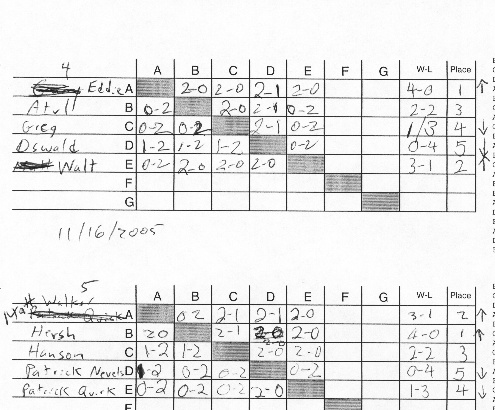 4
A B C D E F G W-L Place
Eddie A 2-0 2-0 2-1 2-0 4-0 1 ↑
Atull B 0-2 2-0 2-1 0-2 2-2 3
Greg C 0-2 0-2 2-1 0-2 1/3 4 ↓
Oswald D 1-2 1-2 1-2 0-2 0-4 5 ↓
Walt E 0-2 2-0 2-0 2-0 3-1 2
F
G
11/16/2005
5
A B C D E F G W-L Place
Matt Walker A 0 2 2-1 2-1 2-0 3-1 2 ↑
Hersh B 20 2-1 2-0 2-0 4-0 1 ↑
Hanson C 1-2 1-2 2-0 2-0 2-2 3
Patrick Nevels D 1-2 0-2 0-2 0-2 0-4 5 ↓
Patrick Quick E 0-2 0-2 0-2 2-0 1-3 4 ↓
F